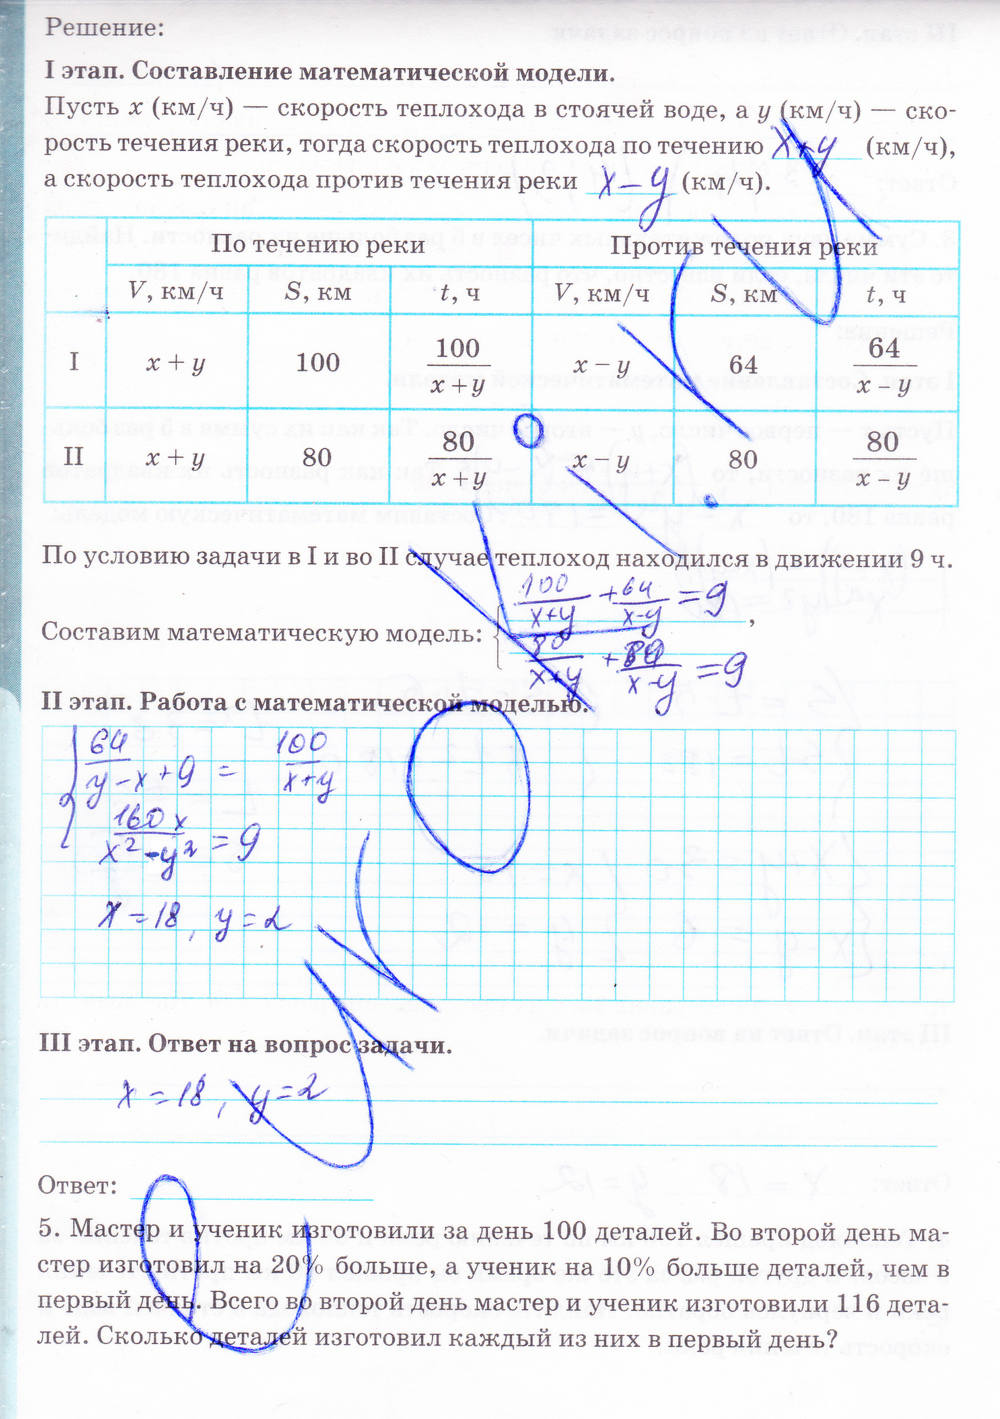 Решение:
I этап. Составление математической модели.
Пусть x (км/ч) — скорость теплохода в стоячей воде, а y (км/ч) — ско-
рость течения реки, тогда скорость теплохода по течению x+y (км/ч),
а скорость теплохода против течения реки x – y (км/ч).
По течению реки Против течения реки
V, км/ч S, км t, ч V, км/ч S, км t, ч
I x + y 100 100/(x + y) x – y 64 64/(x – y)
II x + y 80 80/(x + y) x – y 80 80/(x – y)
По условию задачи в I и во II случае теплоход находился в движении 9 ч.
100/(x+y) + 64/(x-y) = 9,
Составим математическую модель:
80/(x+y) + 80/(x-y) = 9
II этап. Работа с математической моделью.
64/(y-x+9) = 100/(x+y)
160x/(x²-y²) = 9
x = 18, y = 2
III этап. Ответ на вопрос задачи.
x = 18, y = 2
Ответ:
5. Мастер и ученик изготовили за день 100 деталей. Во второй день ма-
стер изготовил на 20% больше, а ученик на 10% больше деталей, чем в
первый день. Всего во второй день мастер и ученик изготовили 116 дета-
лей. Сколько деталей изготовил каждый из них в первый день?